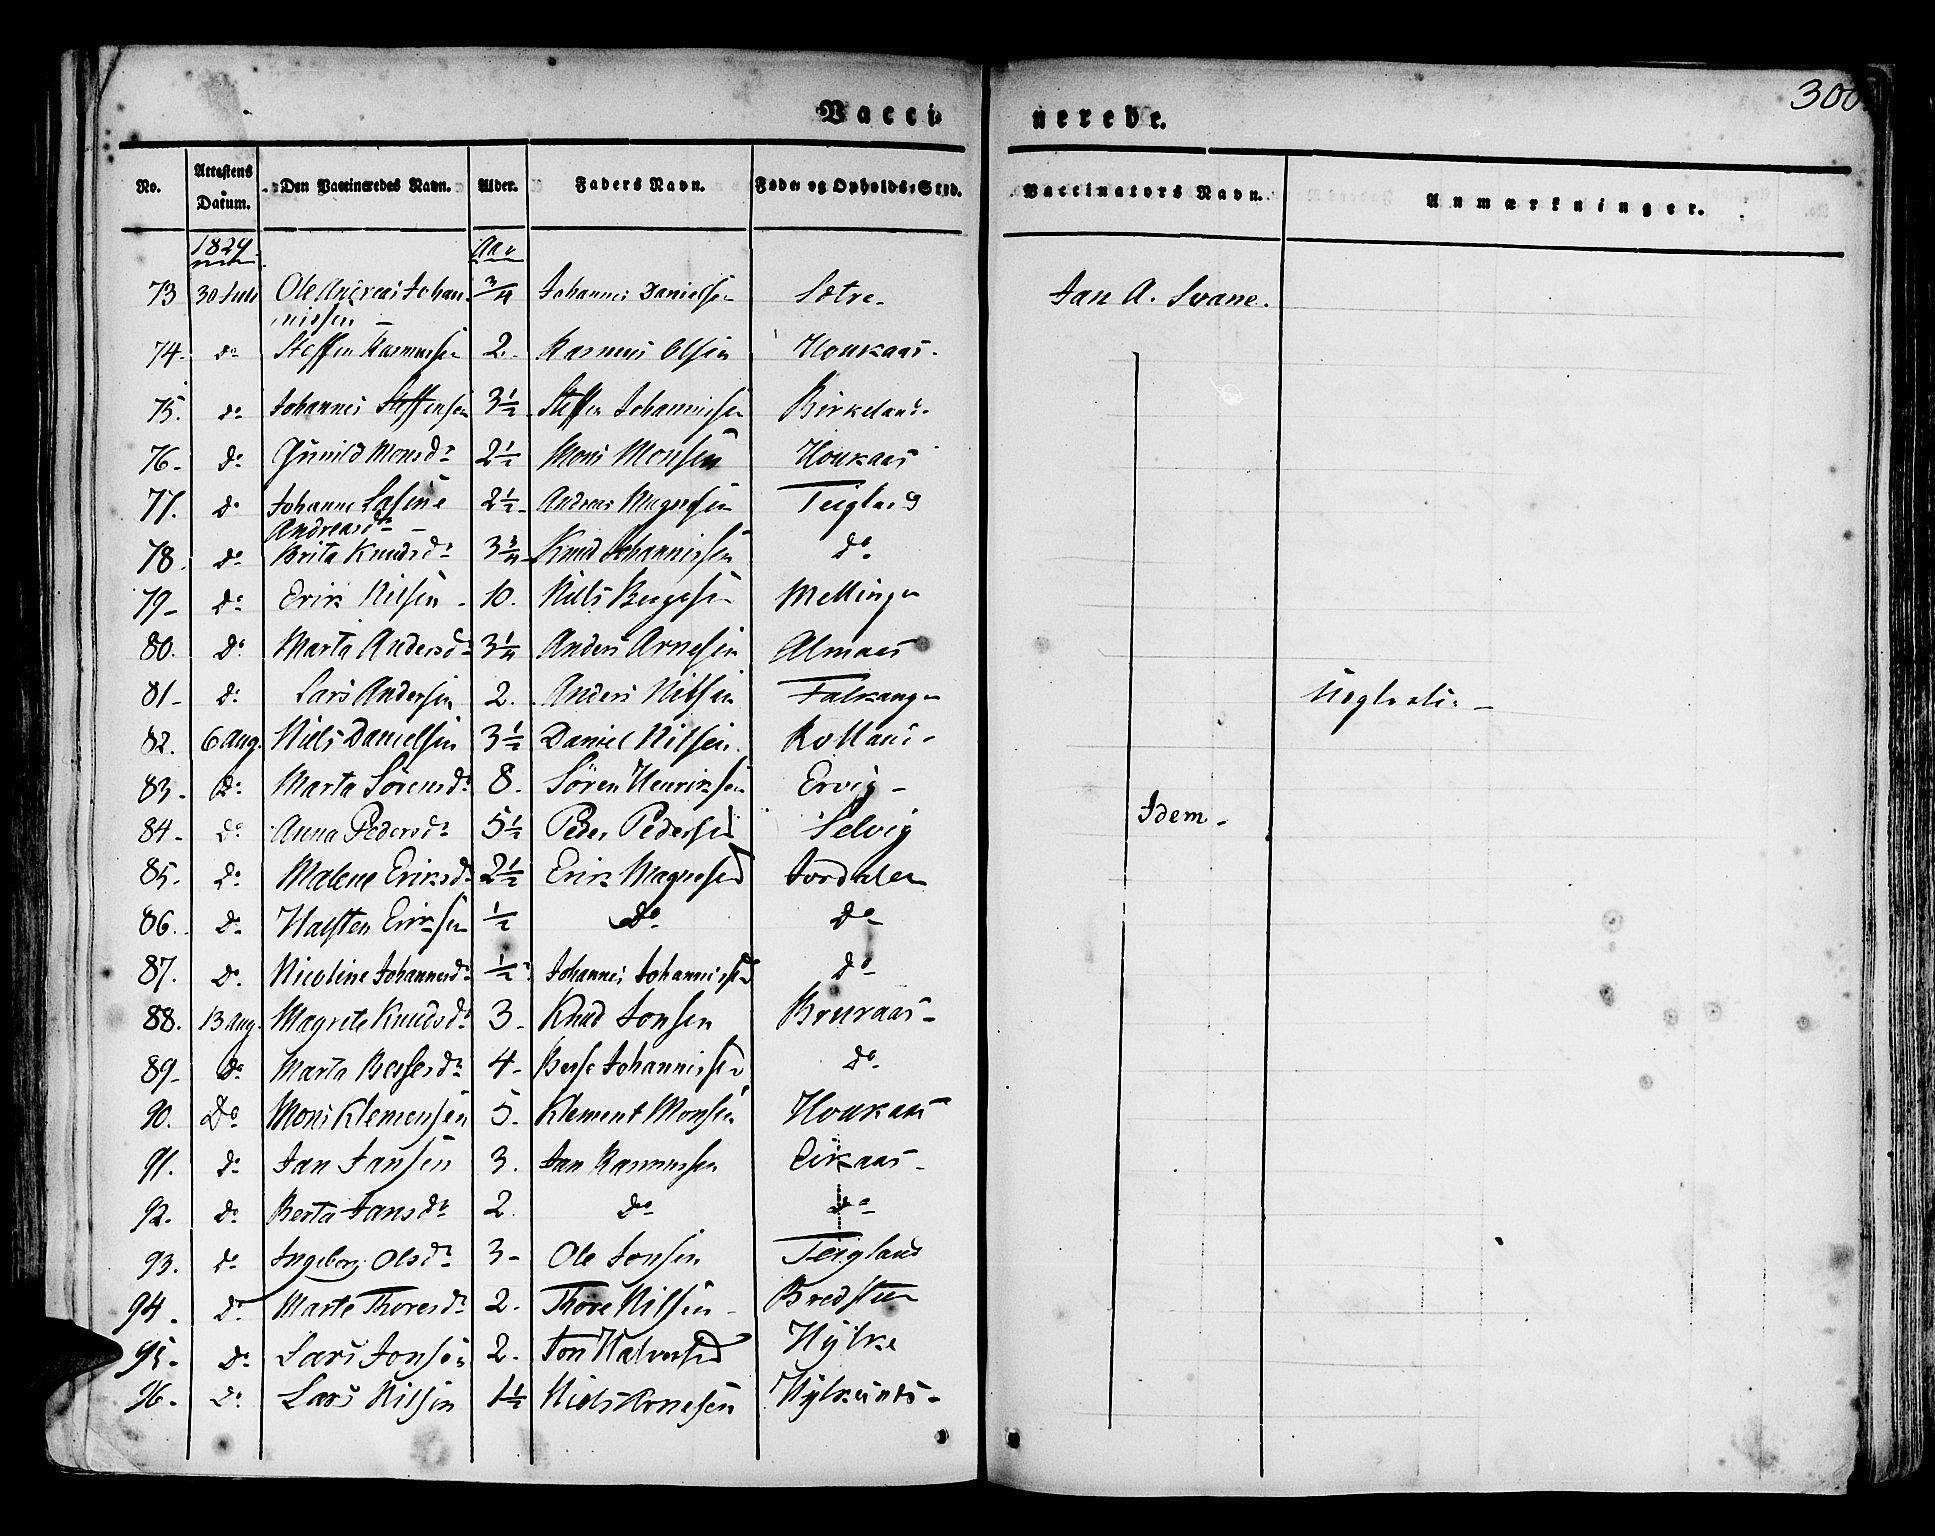 300
Vacci- nerede.
No. Attestens Datum. Den Vaccineredes Navn. Alder. Faders Navn. Føde- og Opholds-Sted. Vaccinators Navn. Anmærkninger.
1824 Aar
73 30 Juli Ole Andreas Johan- 3/4 Johannes Danielsen Sætre- Jan A. Svane.
nissen -
74- do Steffen Rasmussen 2.- Rasmus Olsen Houkaas-
75. do Johannes Steffensen 3 1/2 Steffen Johannissen Birkeland-
76- do Gunild Monsdr 2 1/2 Mons Monsen Houkaas
77. do Johanne 2 1/2- Andreas Magnesen Teigland
Andreasdr -
78. do Brita Knudsdr 3 3/4 Knud Johannissen do-
79- do Erik Nilsen - 10. Niels Mellingen
80. do Marta Andersdr 3 1/4 Anders Arnesen Almaas
81- do Lars Andersen 2. Anders Nilsen Falkangen
82. 6 Aug. Niels Danielsen 3 1/2 Daniel Nilsen. Rolland-
83- do Marta Sörensdr 8. Sören Henriksen Ervig-
84- do Anna Pedersdr 5 1/2 Peder Pedersen Selvig Idem-
85. do Malene Eriksdr 2 1/2 Erik Magnesen Jordalen
86. do Halsten Eriksen 1/2 do do-
87. do Nicoline Johannesdr 1/2 Johannes Johannissen do-
88. 13 Aug. Magrete Knudsdr 3- Knud Jonsen Bruraas-
89- do Marta Bessesdr 4- Besse Johannissen do-
90. Do Mons Klemensen 5. Klement Monsen Houkaas
91. do Jan Jansen 3. Jan Rasmussen Eikaas-
92. do Berta Jansdr 2. do do-
93. do Ingeborg Olsdr 3- Ole Jonsen Teigland
94. do Marte Thoresdr 2. Thore Nilsen- Bredsteen
95. do Lars Jonsen 2. Jon Halversen Hylke
96. do Lars Nilsen 1 1/2 Niels Arnesen